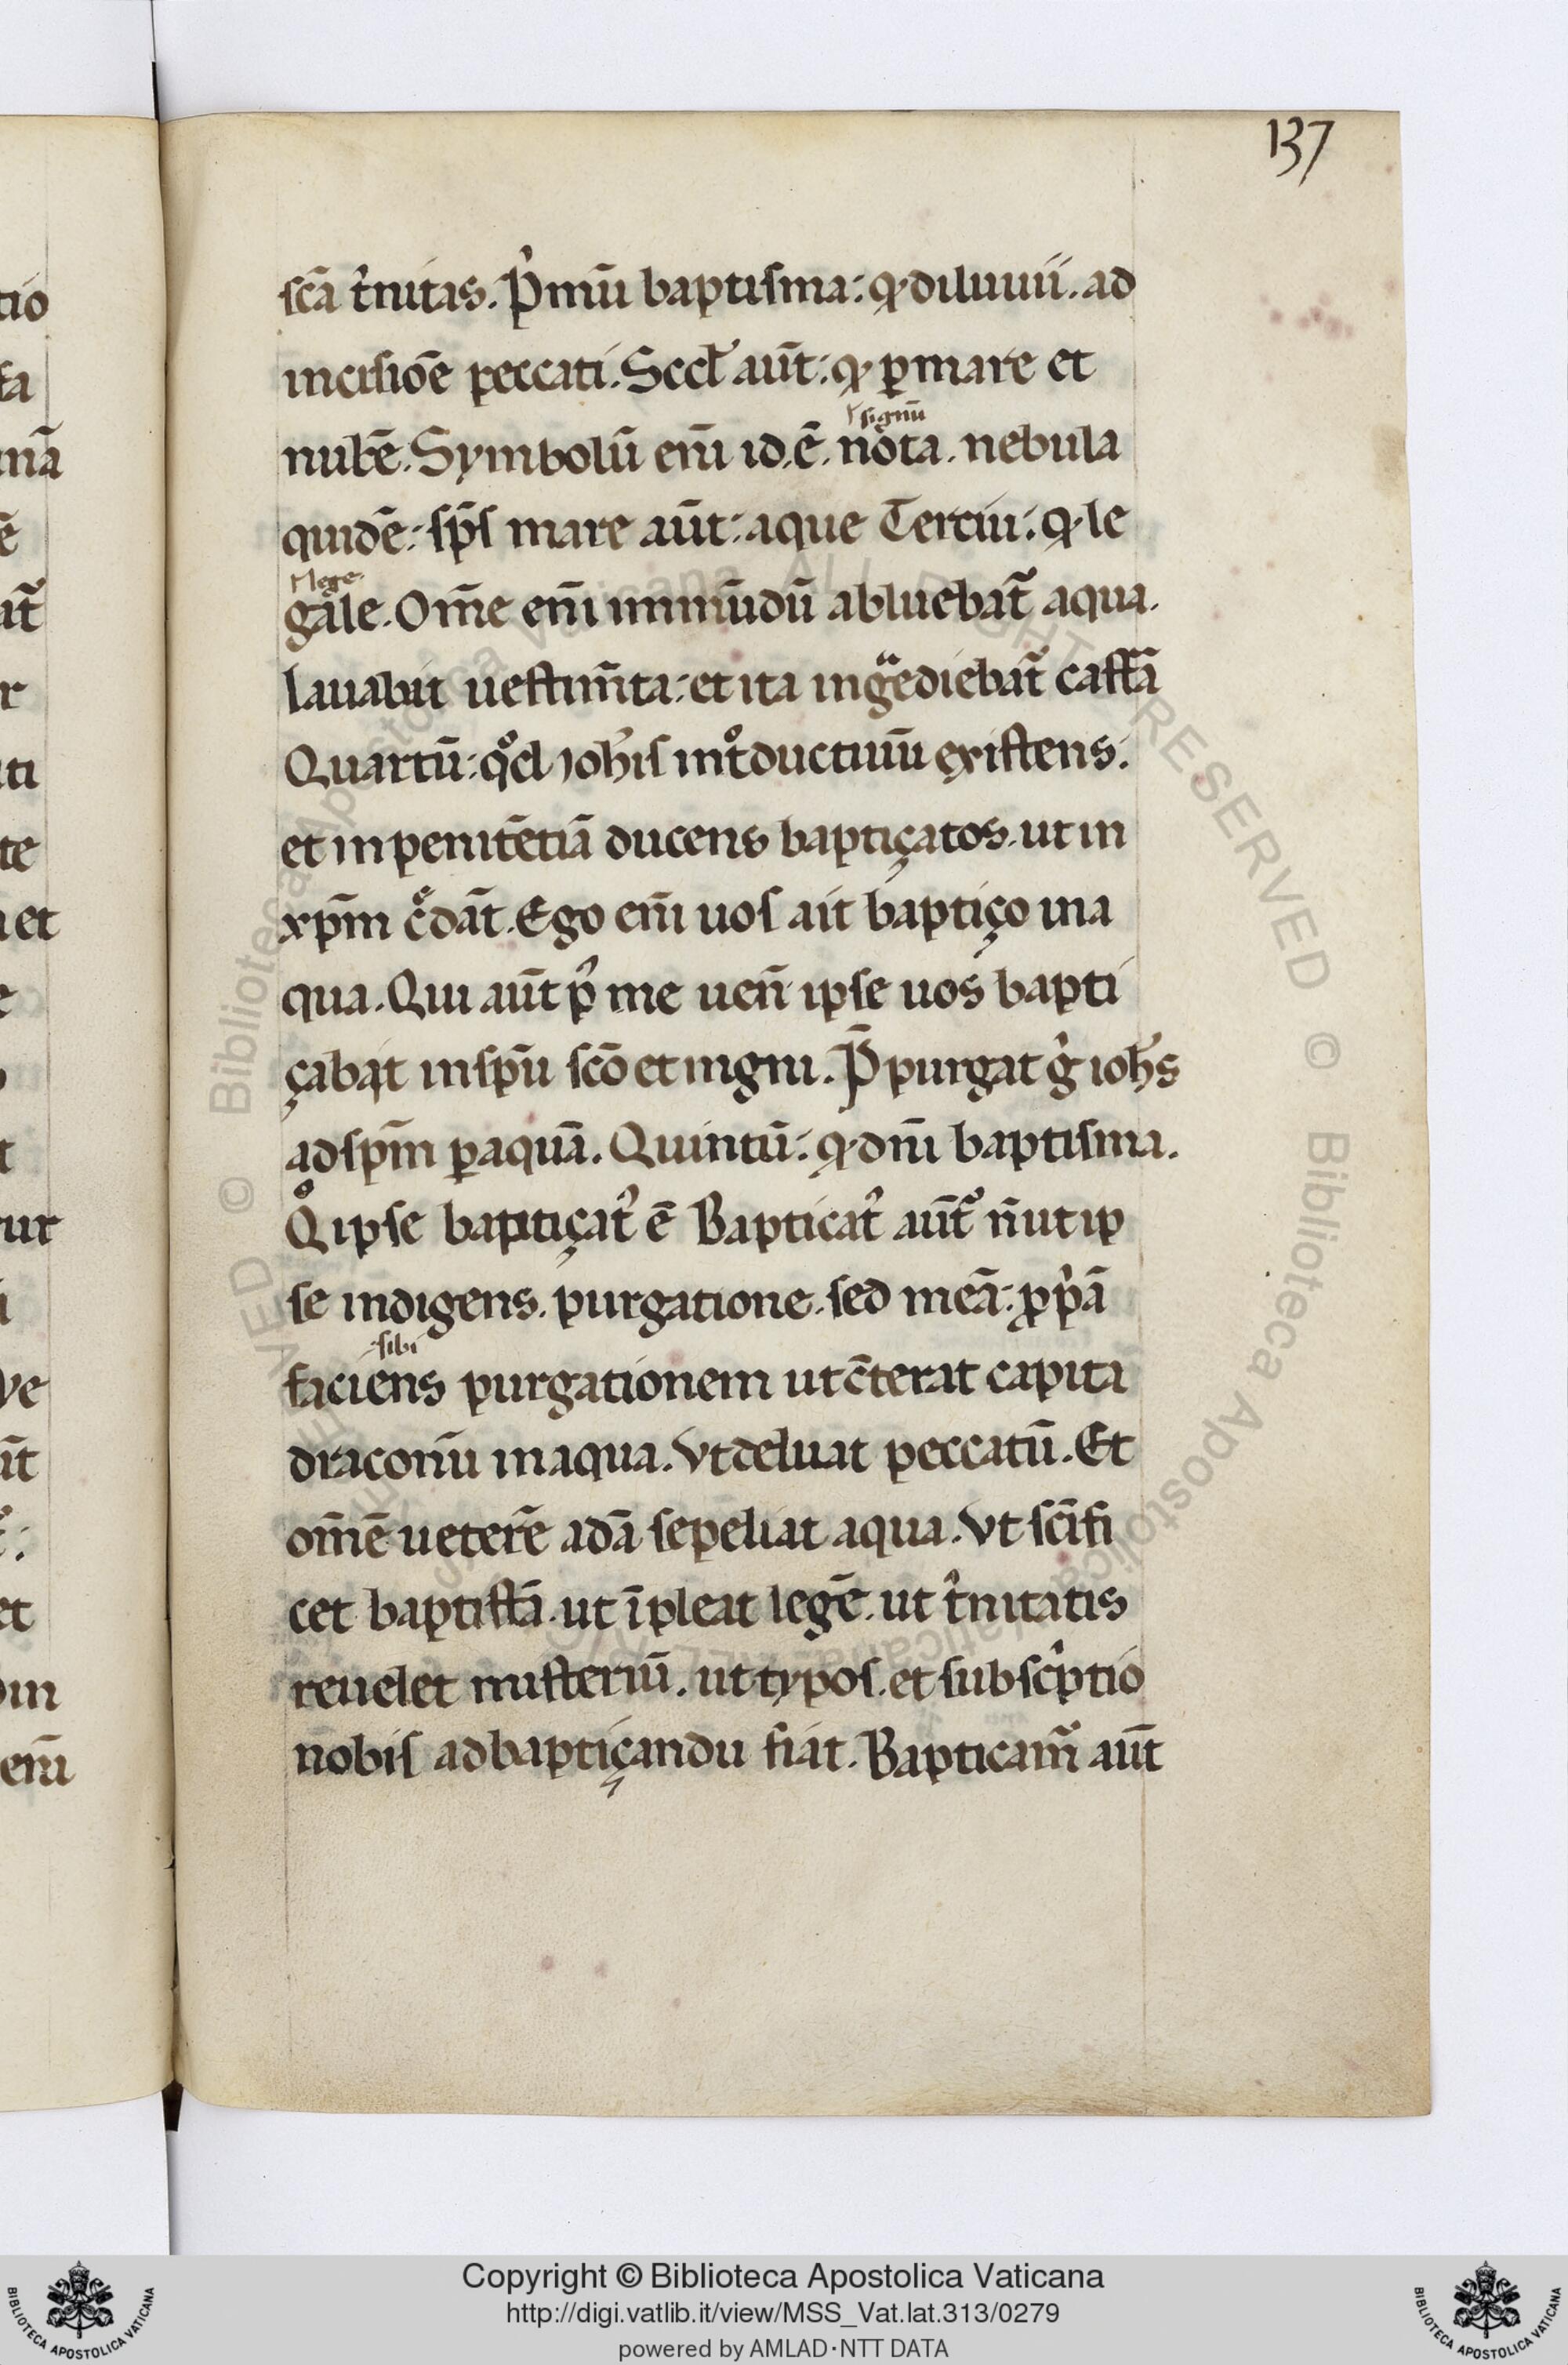 137
scā t᷒nitas. P᷒mū baptisma: q̷ diluuii. ad
incisiōe peccati. Sccd̓ aūt: q̷ ꝑ mare et
nubē. Symbolū eni̅ id. ē. nota. nebula
signū
quidē: sp̄s mare aūt: aque Terciu: q̷ le
l lege
gale. Om̄e eni̅ inmūdū abluebat᷑ aqua.
lauabit uestim̄ta: et ita ingᵃediebat᷑ castᷓa
Quartū: qͦd ioh̄is intͦductiuū existens.
et in penitētiā ducens baptiçatos. ut in
xp̄m c̄dāt. Ego eni̅ uos ait baptiço in a
qua. Qui aūt p᷒ me ueñ ipse uos bapti
çabat in sp̄u sc̄o et in igni. P̄purgat g᷒ ioh̄s
ad sp̄m ꝑ aquā. Quintū: q̷ dn̄i baptisma.
Qͦ ipse baptiçat᷒ ē Bapticat᷒ aūt᷑ n̄ ut ip
se indigens. purgatione. sed meā: ꝓp᷒ā
sibi
faciens purgationem ut c̄terat capita
draconū in aqua. Vt deluat peccatū. Et
om̄ē ueterē adā sepeliat aqua. Vt sc̄ifi
cet baptistā. ut īpleat legē. ut t᷒nitatis
reuelet misteriū. ut typos. et subsc᷒ptio
nobis ad baptiçandu fiat. Bapticam᷑ aūt
tio
fa
nā
ē
at᷑
r
ti
te
et
e
t
ur
ve
et
eni̅
Copyright © Biblioteca Apostolica Vaticana
http://digi.vatlib.it/view/MSS_Vat.lat.313/0279
powered by AMLAD·NTT DATA
BIBLIOTECA APOSTOLICA VATICANA
BIBLIOTECA APOSTOLICA VATICANA